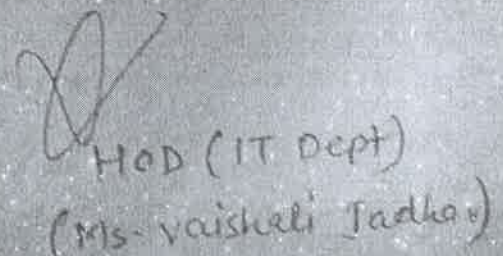 HOD (IT Dept)
(Ms. Vaishali Jadhav)